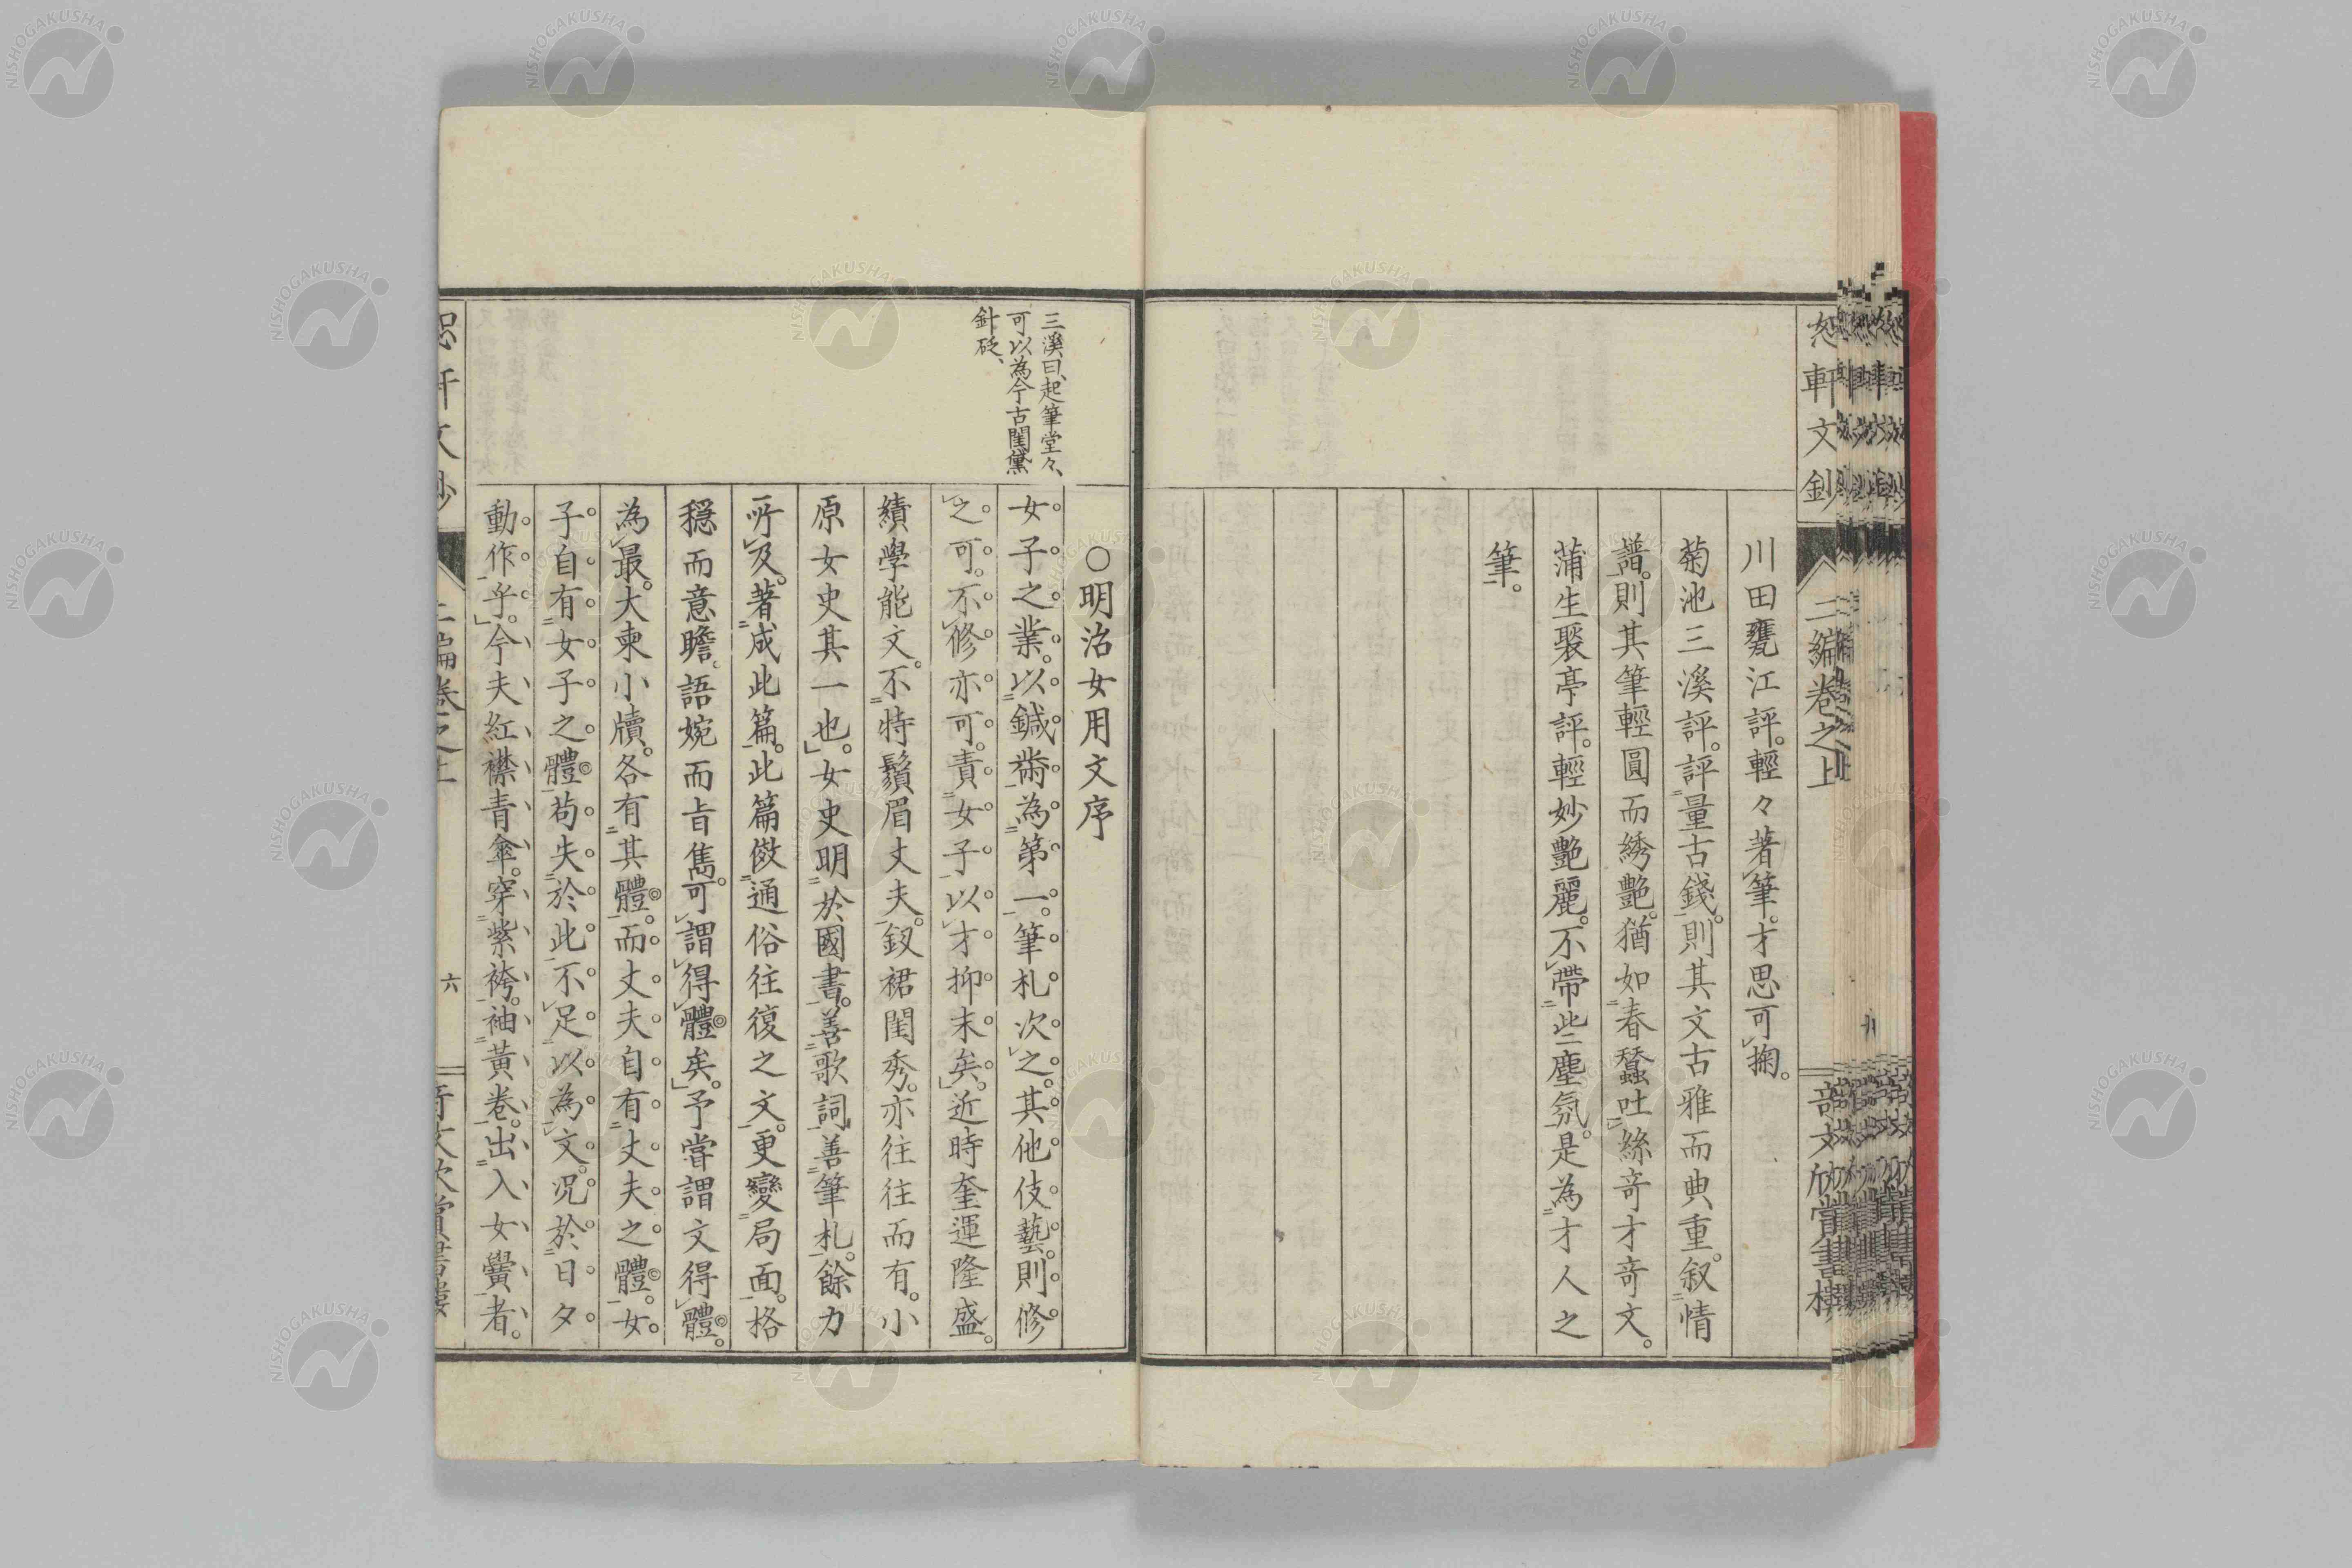 恕軒文鈔
三編卷之上
奇文欣賞書樓
川田甕江評。輕々著筆。才思可掬。
菊池三溪評。評量古錢。則其文古雅而典重。叙情
譜。則其筆輕圓而綉艷。猶如春蠶吐絲。奇才奇文。
蒲生褧亭評。輕妙艷麗。不帶些塵氛。是為才人之
筆。
三溪曰、起筆堂々、
可以為今古閨黛
針砭、
○明治女用文序
女子之業。以鍼黹為第一。筆札次之。其他伎藝。則修
之可。不修亦可。責女子以才抑末矣。近時奎運隆盛。
績學能文。不特鬚眉丈夫。釵裙閨秀。亦往往而有。小
原女史其一也。女史明於國書。善歌詞善筆札。餘力
所及。著成此篇。此篇倣通俗往復之文。更變局面。格
穩而意瞻。語婉而旨雋。可謂得體矣。予嘗謂文得體。
為最。大柬小牘。各有其體。而丈夫自有丈夫之體。女
子自有女子之體。苟失於此。不足以為文。況於日夕
動作乎。今夫紅襟青傘。穿紫袴。袖黃卷。出入女黌者。
六